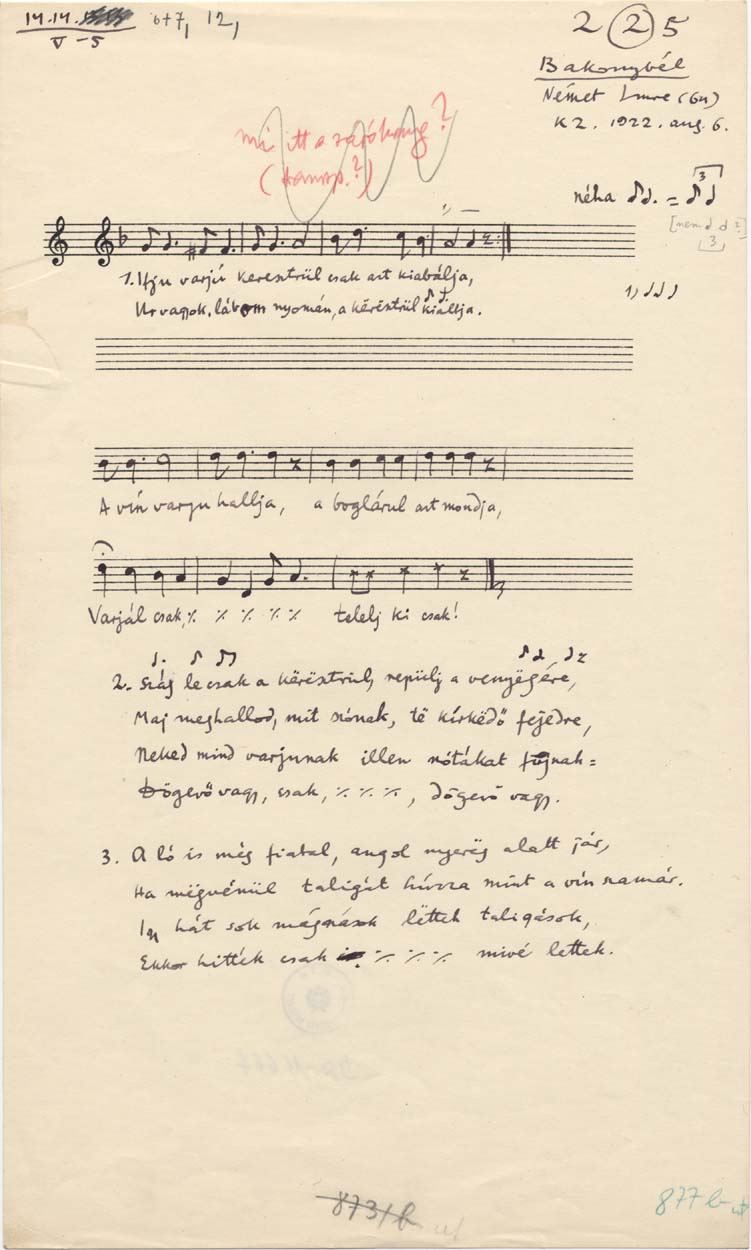 14.14. 6+7, 12,
V - 5
2 2 5
Bakonybél
Német Imre (64)
K Z. 1922. aug. 6.
mi itt a záróhang?
(transp.?)
néha
3
[nem
3
1. Ifju varjú keresztrül csak azt kiabálja,
Ur vagyok, lábom nyomán, a kërësztrül kiálltja.
1)
A vín varju hallja, a boglárul azt mondja,
Varjál csak, ٪ ٪ ٪ ٪ ٪ telelj ki csak!
2. Száj le csak a kërësztrül, repülj a venyëgére,
Maj meghallod, mit szónak, të kírkëdő fejedre,
Neked mind varjunak illen nótákat fujnak =
Dögevő vagy, csak, ٪ ٪ ٪, dögevő vagy.
3. A ló is még fiatal, angol nyerëg alatt jár,
Ha mëgvénül taligát húzza mint a vín szamár.
Igy hát sok mágnások lëttek taligások,
Ekkor hitték csak ٪ ٪ ٪ mivé lettek.
873/b
877 b